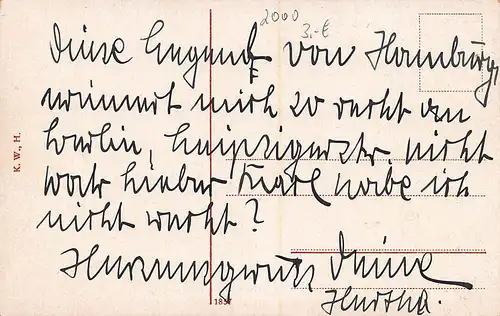 2000
3.-€
Diese Gegend von Hamburg,
erinnert mich so recht an
Berlin, Leipzigerstr. nicht
wahr lieber Karl habe ich
nicht recht?
Herzensgruß, Deine
Hertha.
K. W., H.
1857